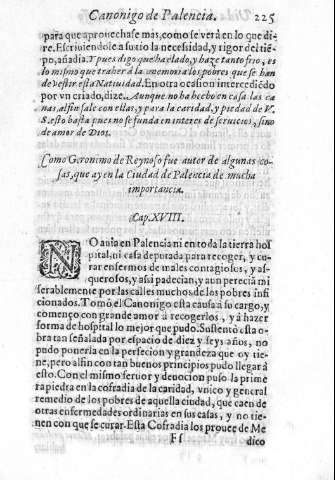 Canonigo de Palencia. 225
para que aprouechase mas, como se verà en lo que di-
re. Escriuiendole a su tio la necesidad, y rigor del tiē-
po, añadia. Y pues digo que ha elado, y haze tanto frio, es
lo mismo que traher à la memoria los pobres que se han
de vestir esta Natiuidad. En otra ocasion intercediēdo
por vn criado, dize. Aunque no ha hecho en casa las ca-
nas, al fin sale con ellas, y para la caridad, y piedad de V.
S. esto basta pues no se funda en interes de seruicios, sino
de amor de Dios.
Como Geronimo de Reynoso fue autor de algunas co-
sas, que ay en la Ciudad de Palencia de mucha
importancia.
Cap. XVIII.
NO auia en Palencia ni en toda la tierra hos
pital, ni casa deputada para recoger, y cu-
rar enfermos de males contagiosos, y as-
querosos, y assi padecian, y aun perecia mi
serablemente por las calles muchos de los pobres infi
cionados. Tomò el Canonigo esta causa a su cargo, y
començo con grande amor à recogerlos, y à hazer
forma de hospital lo mejor que pudo. Sustentò esta o-
bra tan señalada por espacio de diez y seys años, no
pudo ponerla en la perfecion y grandeza que oy tie-
ne, pero al fin con tan buenos principios pudo llegar à
esto. Con el mismo feruor y deuocion puso la prime
ra piedra en la cofradia de la caridad, vnico y general
remedio de los pobres de aquella ciudad, que caen de
otras enfermedades ordinarias en sus casas, y no tie-
nen con que se curar. Esta Cofradia los prouee de Me
Ff dico